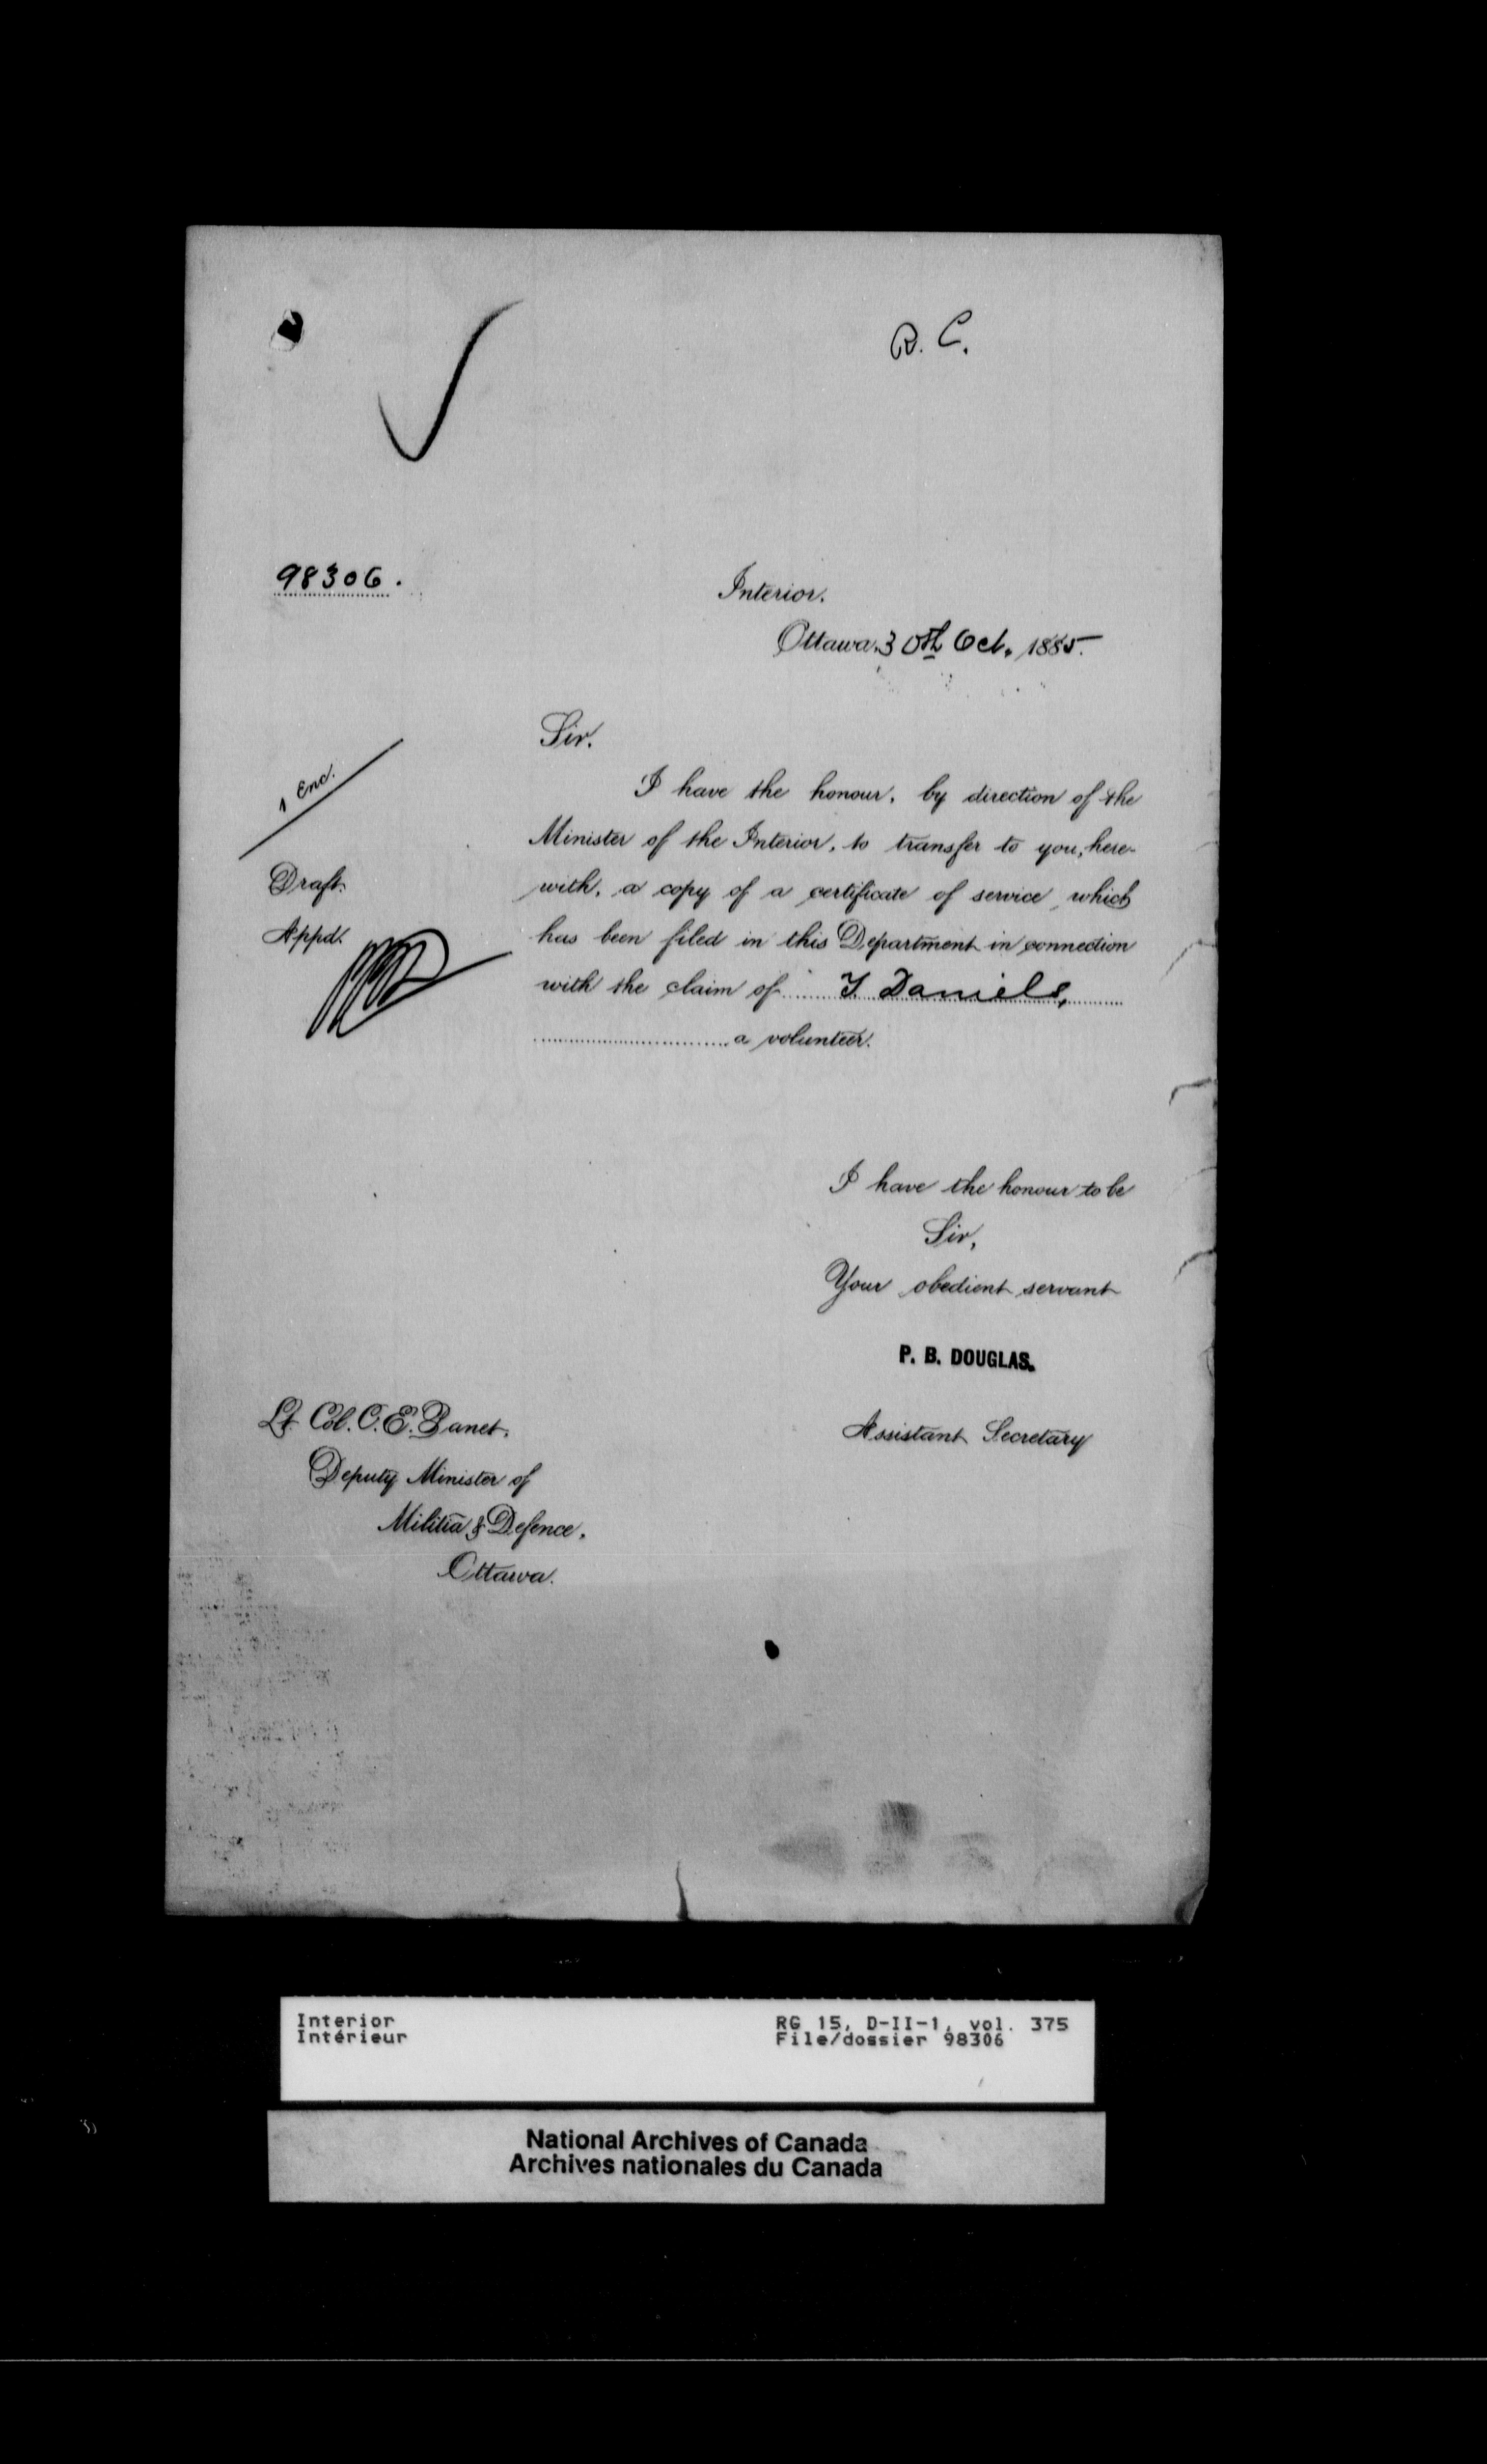 R. C.
98306.
Interior.
Ottawa, 30th Oct. 1885.
Sir.
1 Enc.
I have the honour, by direction of the
Minister of the Interior, to transfer to you, here-
with, a copy of a certificate of service which
has been filed in this Department in connection
with the claim of T. Daniels,
a volunteer.
Draft.
Appd.
I have the honour to be
Sir,
Your obedient servant
P. B. DOUGLAS.
Assistant Secretary
Lt. Col. C. E. Panet.
Deputy Minister of
Militia & Defence.
Ottawa.
Interior
Intérieur
RG 15, D-II-1, vol. 375
File/dossier 98306
National Archives of Canada
Archives nationales du Canada